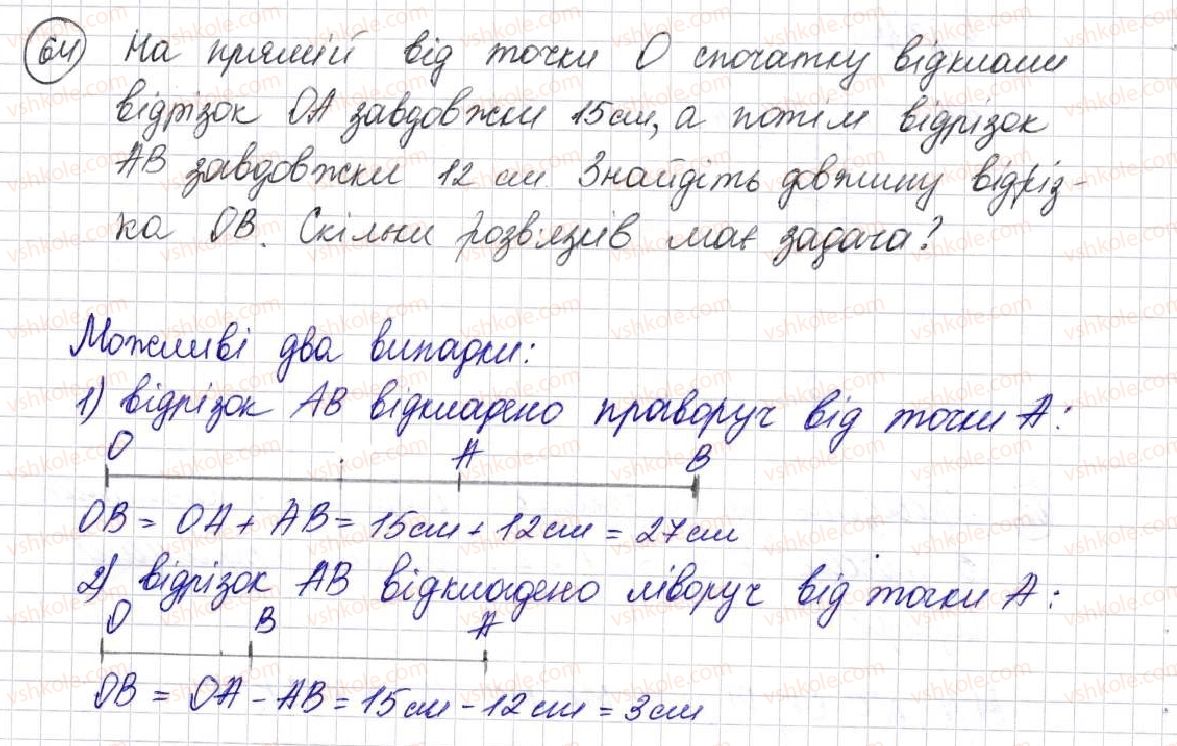 64) На прямій від точки О спочатку відклали
відрізок ОА завдовжки 15 см, а потім відрізок
АВ завдовжки 12 см. Знайдіть довжину відріз-
ка ОВ. Скільки розв'язків має задача?
Можливі два випадки:
1) відрізок АВ відкладено праворуч від точки А:
О А В
ОВ = ОА + АВ = 15 см + 12 см = 27 см
2) відрізок АВ відкладено ліворуч від точки А:
О В А
ОВ = ОА - АВ = 15 см - 12 см = 3 см
vshkole.com